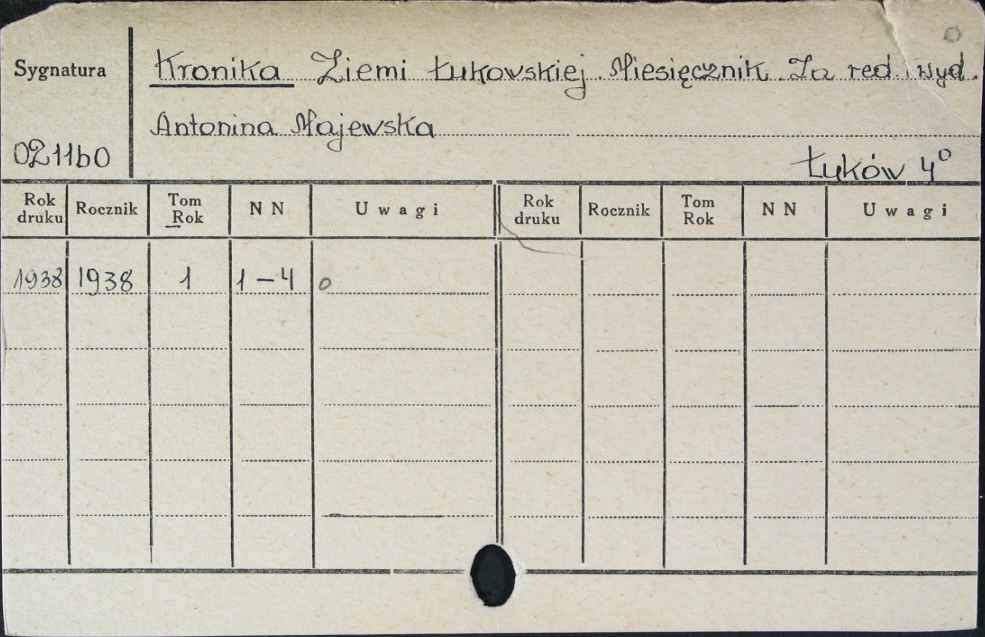 Sygnatura
Kronika Ziemi Łukowskiej. Miesięcznik. Za red. i wyd.
Antonina Majewska
0211b0
Łuków 4°
Rok druku Rocznik Tom Rok N N Uwagi Rok druku Rocznik Tom Rok N N Uwagi
1938 1938 1 1-4 o